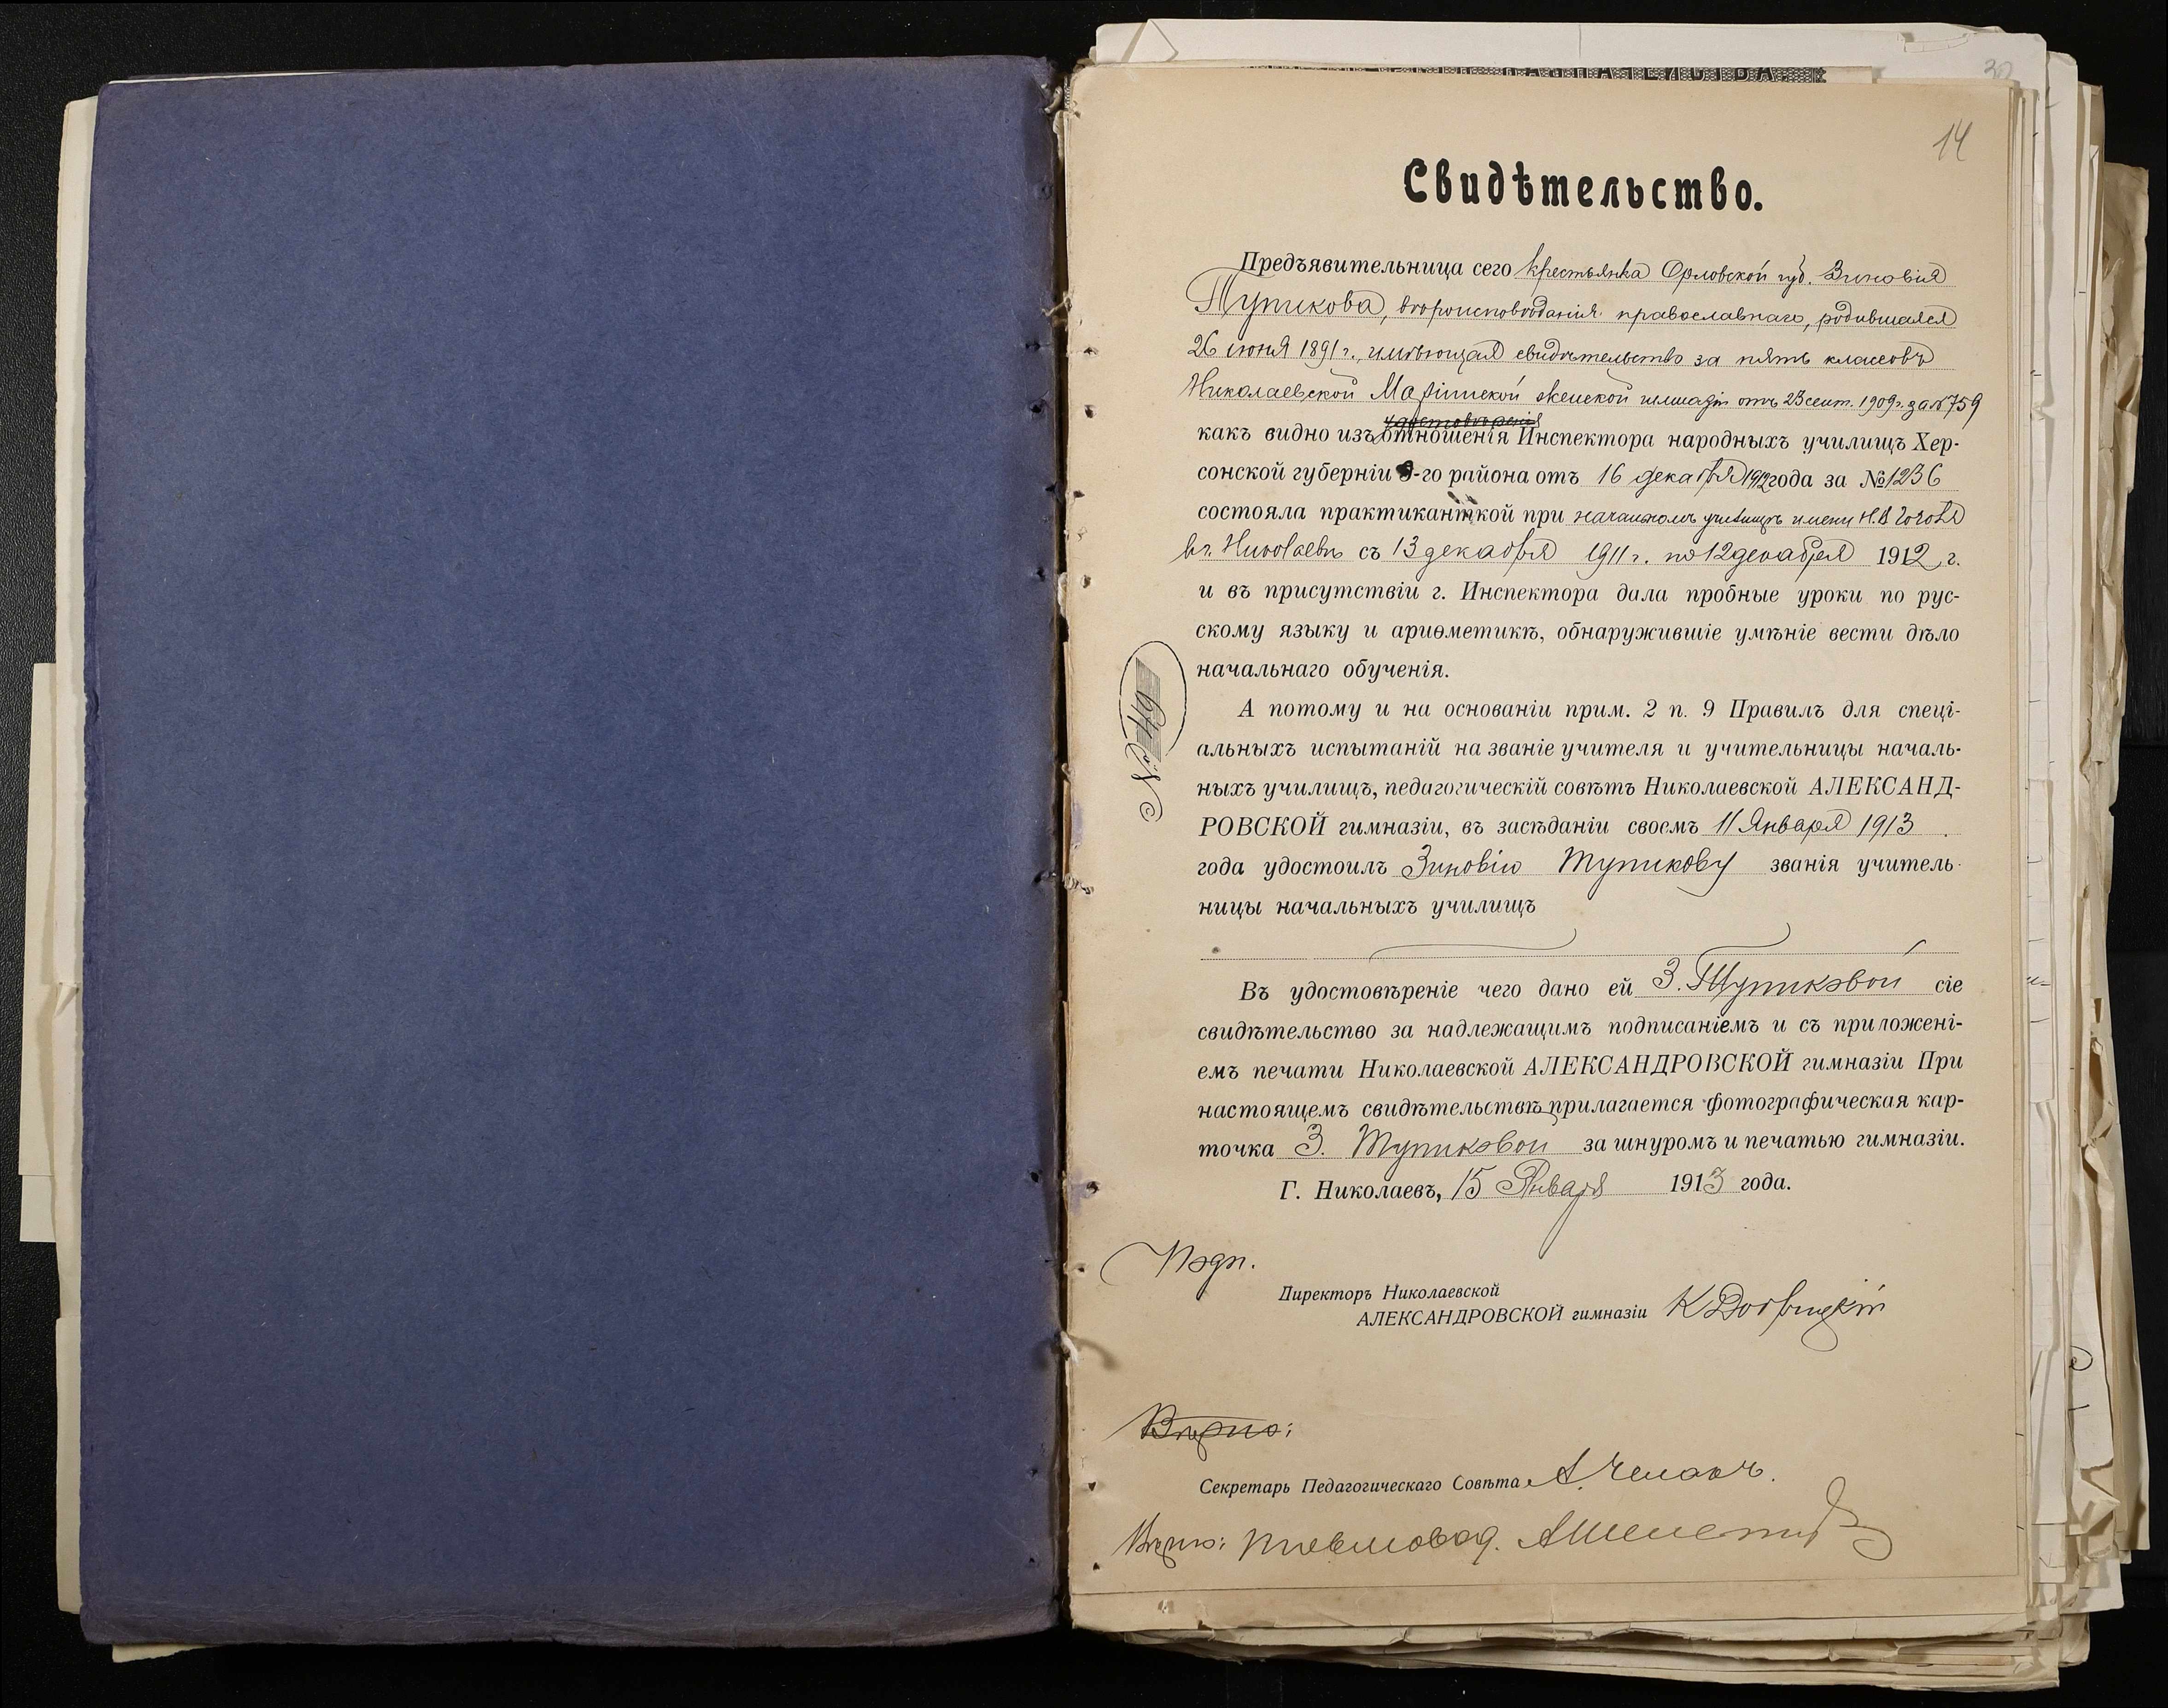 14
Свидѣтельство.
Предъявительница сего крестьянка Орловской губ. Зиновія
Тупикова, вѣроисповѣданія православнаго, родившаяся
26 іюня 1891 г., имѣющая свидѣтельство за пять классовъ
Николаевской Маріинской женской гимназіи отъ 23 сент. 1909 г. за № 759
удостовѣренія
какъ видно изъ отношенія Инспектора народныхъ училищъ Хер-
сонской губерніи -го района отъ 16 декабря 1912 года за № 1236
состояла практиканткой при начальномъ училищѣ имени Н.В. Гоголя
въ г. Николаевѣ съ 13 декабря 1911 г. по 12 декабря 1912 г.
и въ присутствіи г. Инспектора дала пробные уроки по рус-
скому языку и ариѳметикѣ, обнаружившіе умѣніе вести дѣло
начальнаго обученія.
№ 49
А потому и на основаніи прим. 2 п. 9 Правилъ для спеці-
альныхъ испытаній на званіе учителя и учительницы началь-
ныхъ училищъ, педагогическій совѣтъ Николаевской АЛЕКСАНД-
РОВСКОЙ гимназіи, въ засѣданіи своемъ 11 Января 1913
года удостоилъ Зиновію Тупикову званія учитель-
ницы начальныхъ училищъ
Въ удостовѣреніе чего дано ей З. Тупиковой сіе
свидѣтельство за надлежащимъ подписаніемъ и съ приложені-
емъ печати Николаевской АЛЕКСАНДРОВСКОЙ гимназіи При
настоящемъ свидѣтельствѣ прилагается фотографическая кар-
точка З. Тупиковой за шнуромъ и печатью гимназіи.
Г. Николаевъ, 15 Января 1913 года.
Подп.
Директоръ Николаевской
АЛЕКСАНДРОВСКОЙ гимназіи К
Вѣрно:
Секретарь Педагогическаго Совѣта А.
Вѣрно: письмовод.